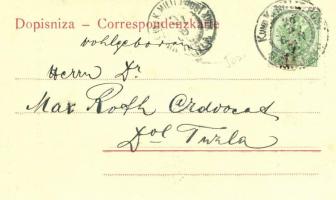 Dopisniza – Correspondenzkarte
Wohlgeboren
Herrn Dr
Max Roth Advocat
Dol Tuzla